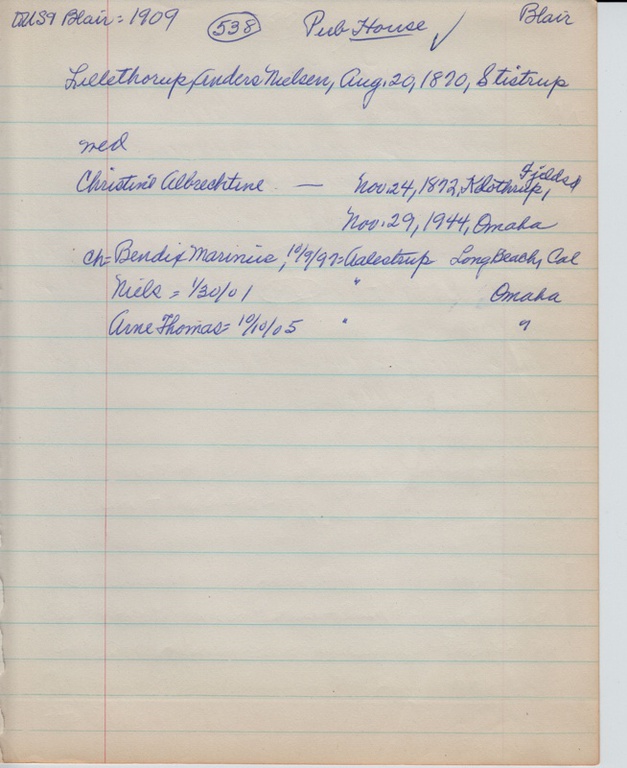 Blair = 1909 538 Pub House ✓ Blair
Lillethorup, Anders Nielsen, Aug. 20, 1870, Stistrup
med
Christine Albrechtine — Nov. 24, 1872,
Nov. 29, 1944, Omaha
ch = Bendix Marinius, 10/9/97 = Aalestrup Long Beach, Cal
Niels = 1/30/01 " Omaha
Arne Thomas = 10/10/05 " "